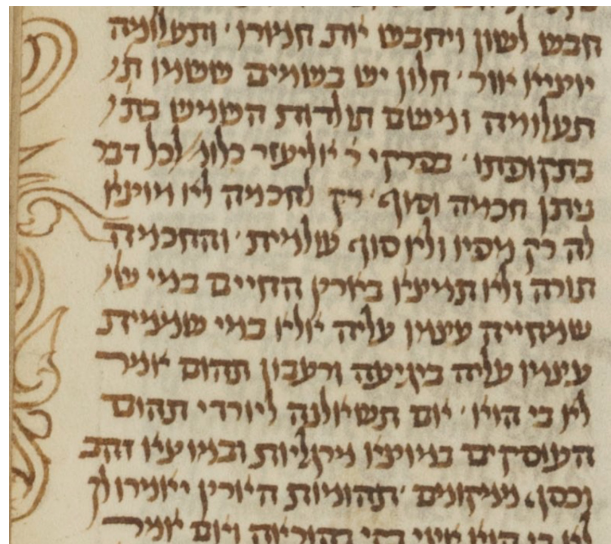 חבש לשון ויחבש את חמורו ׳ ותעלומה
יוציא אור ׳ חלון יש בשמים ששמו ת׳
תעלומה ומשם תולדות השמש בת׳
בתקופתו ׳ בפרקי ר׳ אליעזר כלומ׳ לכל דבר
ניתן חכמה וסוף ׳ רק לחכמה לא מוצא
לה רק מפיו ולא סוף עולמית ׳ והחכמה
תורה ולא תמצא בארץ החיים במי ש׳
שמחייה עצמו עליה אלא במי שממית
עצמו עליה ביגיעה ורעבון תהום אמר
לא בי היא ׳ אם תשאלנה ליורדי תהום
העוסקים במוצא מרגליות ובמוצא זהב
וכסף ממקומם ׳ תהומות הארץ יאמרו לך
לא בי היא